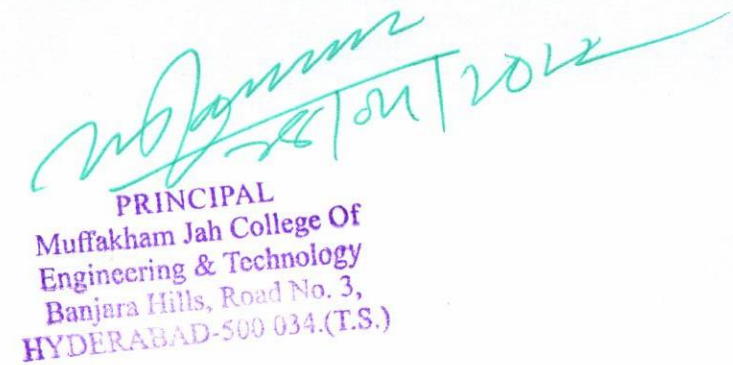 2022
PRINCIPAL
Muffakham Jah College Of
Engineering & Technology
Banjara Hills, Road No. 3,
HYDERABAD-500 034.(T.S.)